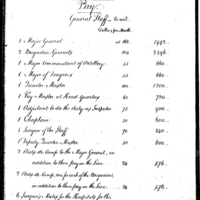 Pay
General Staff — to wit.
Dollars per Month
1 Major General at 166. 1992.
2 Brigadier Generals 104 2496.
1 Major Commandant of Artillery 55 660.
1 Major of Dragoons 55 660.
1 Quarter Master 100 1200.
1 Pay Master at Head Quarters 60 720.
1 Adjutant to do the duty as Inspector 75 900.
1 Chaplain 50 600.
1 Surgeon of the Staff 70 840.
1 Deputy Quarter Master 50 600.
2 Aids de Camp to the Major General, in
addition to their pay in the Line 24 576.
2 Aids de Camp, one for each of the Brigadiers,
in addition to their pay in the Line 24 576.
6 Surgeon's Mates for the Hospitals for the